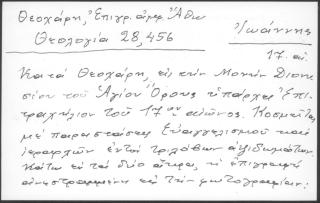 Θεοχάρη, Ἐπιγρ. ἀμφ. Ἄθω
Θεολογία 28,456
Ἰωάννης
17. αἰ.
Κατά Θεοχάρη, εἰς τήν Μονήν Διονυ
σίου τοῦ Ἁγίου Ὄρους ὑπάρχει Ἐπι
τραχήλιον τοῦ 17ου αἰῶνος. Κοσμεῖται
μέ παραστάσεις Εὐαγγελισμοῦ καί
ἱεραρχῶν ἐντός τριλόβων ἀψιδωμάτων.
Κάτω εἰς τά δύο ἄκρα, ἡ ἐπιγραφή
ἀνεστραμμένη εἰς τήν φωτογραφίαν: